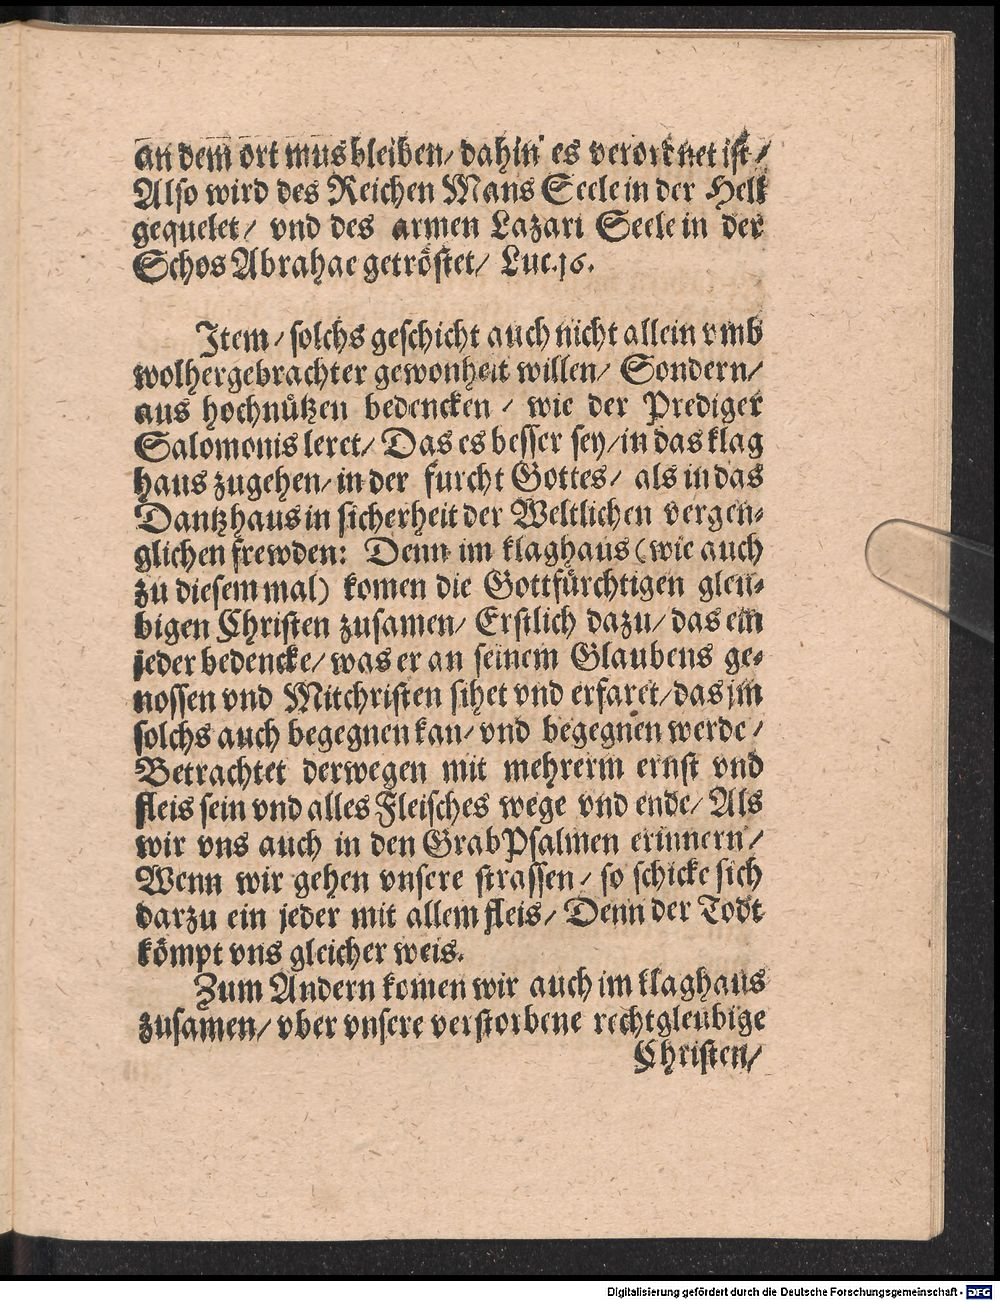 an dem ort mus bleiben/ dahin es verordnet ist/
Also wird des Reichen Mans Seele in der Hell
gequelet/ vnd des armen Lazari Seele in der
Schos Abrahae getröstet/ Luc.16.
Item/ solchs geschicht auch nicht allein vmb
wolhergebrachter gewonheit willen/ Sondern/
aus hochnützen bedencken/ wie der Prediger
Salomonis leret/ Das es besser sey/ in das klag
haus zugehen/ in der furcht Gottes/ als in das
Dantzhaus in sicherheit der Weltlichen vergen-
glichen frewden: Denn im klaghaus (wie auch
zu diesem mal) komen die Gottfürchtigen gleu-
bigen Christen zusamen/ Erstlich dazu/ das ein
jeder bedencke/ was er an seinem Glaubens ge-
nossen vnd Mitchristen sihet vnd erfaret/ das jm
solchs auch begegnen kan/ vnd begegnen werde/
Betrachtet derwegen mit mehrerm ernst vnd
fleis sein vnd alles Fleisches wege vnd ende/ Als
wir vns auch in den GrabPsalmen erinnern/
Wenn wir gehen vnsere strassen/ so schicke sich
darzu ein jeder mit allem fleis/ Denn der Todt
kömpt vns gleicher weis.
Zum Andern komen wir auch im klaghaus
zusamen/ vber vnsere verstorbene rechtgleubige
Christen/
Digitalisierung gefördert durch die Deutsche Forschungsgemeinschaft - DFG